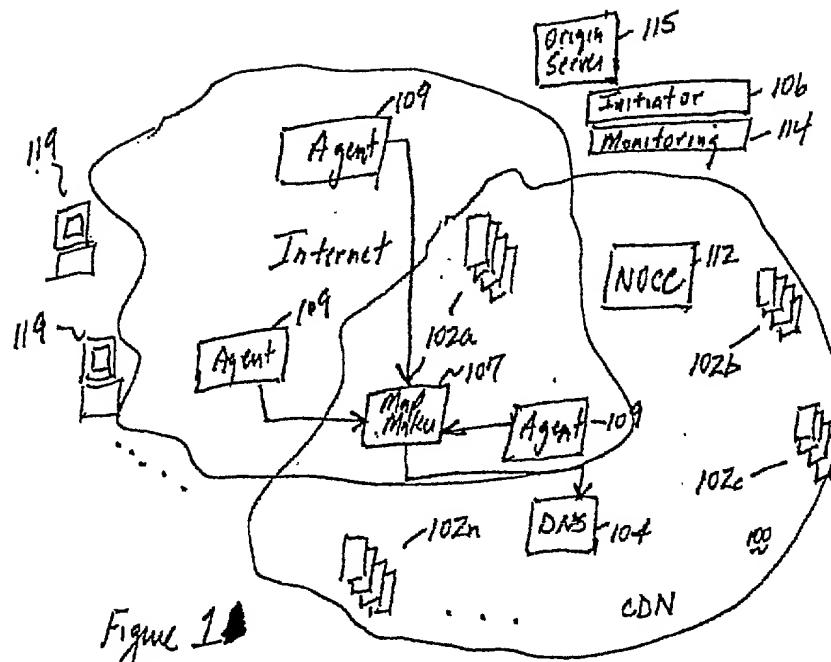 Origin
Server
115
Initiator
106
Monitoring
114
109
Agent
119
Internet
NOCC
112
102a
102b
119
109
Agent
107
Map
Maker
Agent
109
102c
DNS
104
100
102n
. . .
CDN
Figure 1